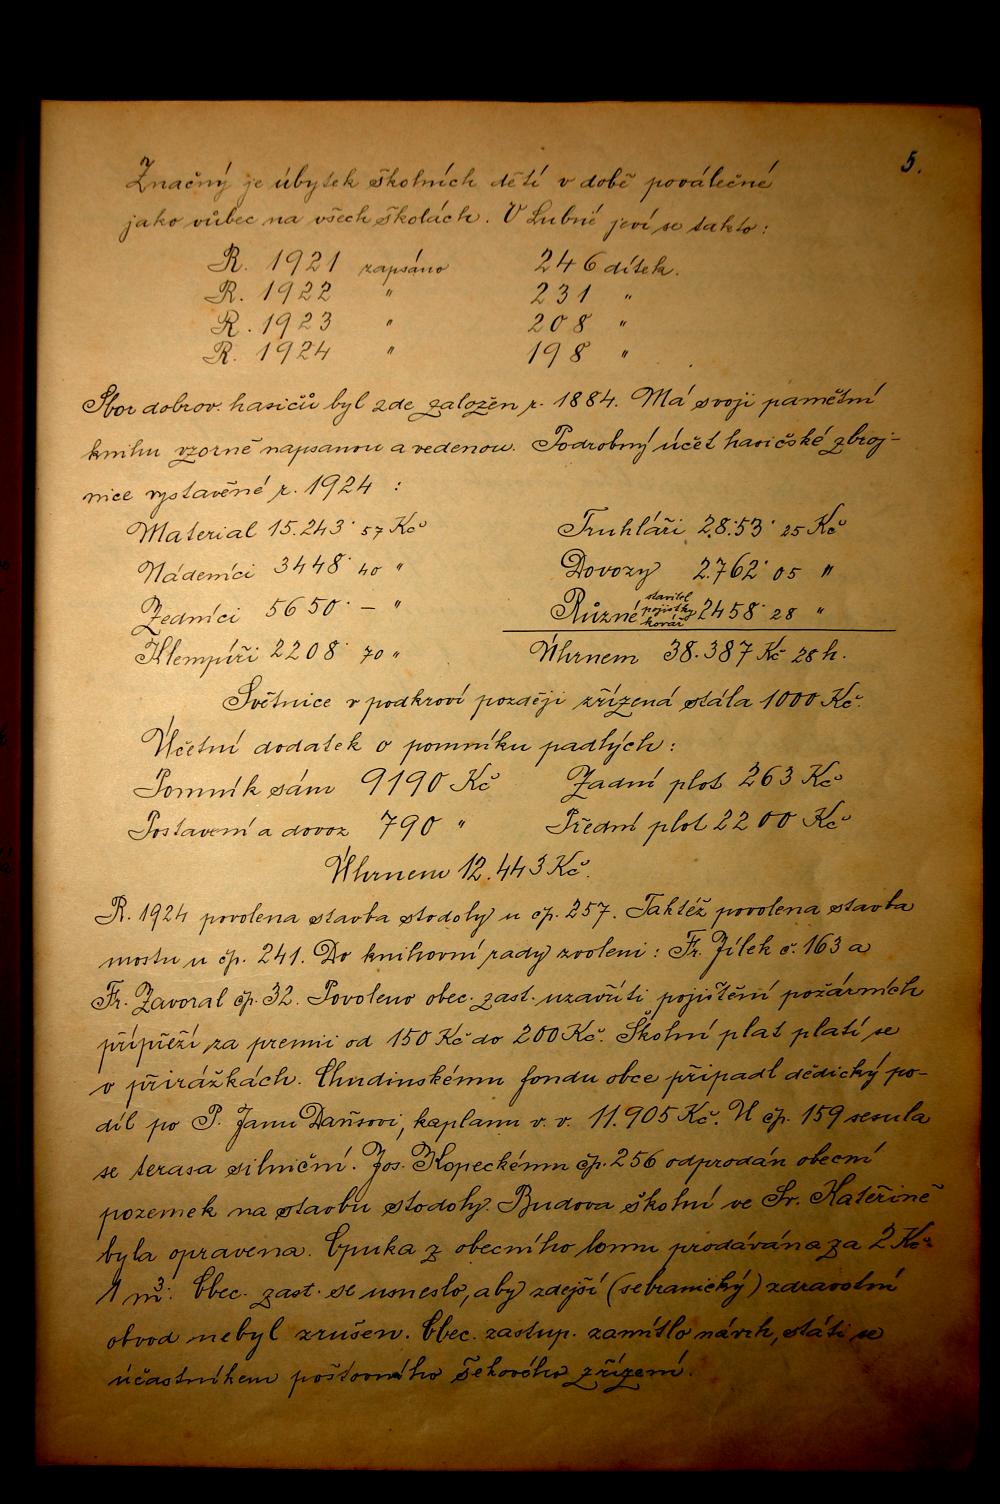 5.
Značný je úbytek školních dětí v době poválečné
jako vůbec na všech školách. V Lubné jeví se takto:
R. 1921 zapsáno 246 dítek.
R. 1922 " 231 "
R. 1923 " 208 "
R. 1924 " 198 "
Sbor dobrov. hasičů byl zde založen r. 1884. Má svoji pamětní
knihu vzorně napsanou a vedenou. Podrobný účet hasičské zbroj-
nice vystavěné r. 1924 :
Material 15.243· 57 Kč Truhláři 28.53· 25 Kč
Nádeníci 3448· 40 " Dovozy 2.762· 05 "
Zedníci 5650· — " Různé stavitel pojistky kovář 2458· 28 "
Klempíři 2208· 70 " Úhrnem 38.387 Kč 28 h.
Světnice v podkroví později zřízená stála 1000 Kč.
Účetní dodatek o pomníku padlých :
Pomník sám 9190 Kč Zadní plot 263 Kč
Postavení a dovoz 790 " Přední plot 2200 Kč
Úhrnem 12.443 Kč.
R. 1924 povolena stavba stodoly u čp. 257. Taktéž povolena stavba
mostu u čp. 241. Do knihovní rady zvoleni : Fr. Jílek č. 163 a
Fr. Zavoral čp. 32. Povoleno obec. zast. uzavříti pojištění požárních
přípřeží za premii od 150 Kč do 200 Kč. Školní plat platí se
v přirážkách. Chudinskému fondu obce připadl dědický po-
díl po P. Janu Daňsovi, kaplanu v. v. 11.905 Kč. U čp. 159 sesula
se terasa silniční. Jos. Kopeckému čp. 256 odprodán obecní
pozemek na stavbu stodoly. Budova školní ve Sv. Kateřině
byla opravena. Opuka z obecního lomu prodávána za 2 Kč
1 m³. Obec. zast. se usneslo, aby zdejší (sebranický) zdravotní
obvod nebyl zrušen. Obec. zastup. zamítlo návrh, státi se
účastníkem poštovního šekového zřízení.